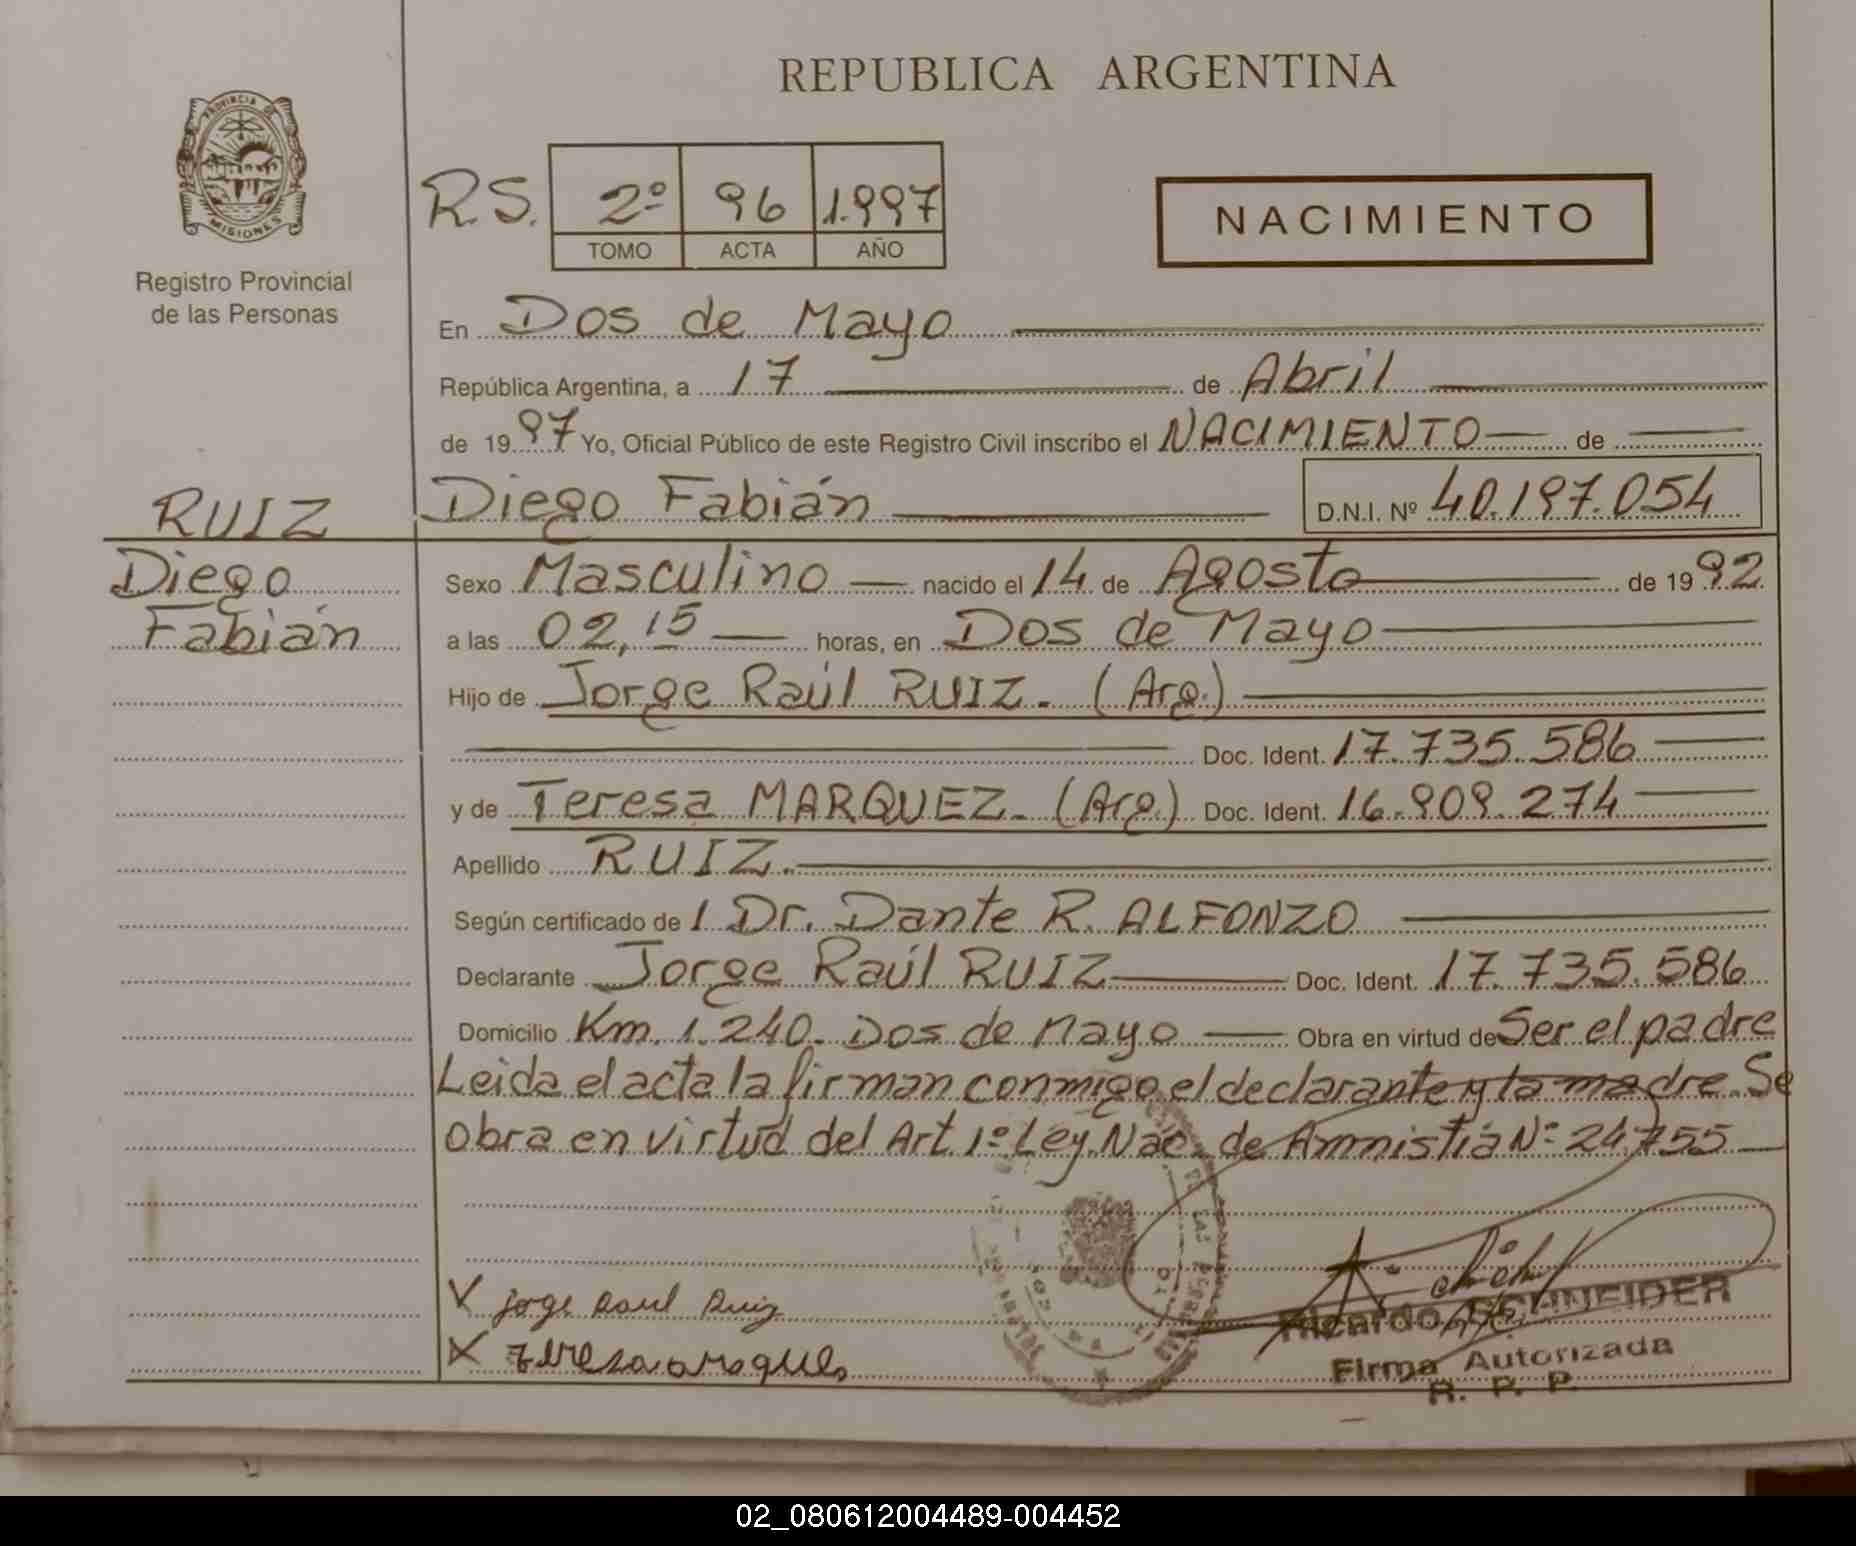 REPUBLICA ARGENTINA
PROVINCIA DE MISIONES
Registro Provincial
de las Personas
R.S. 2º 96 1.997
TOMO ACTA AÑO
NACIMIENTO
En Dos de Mayo
República Argentina, a 17 de Abril
de 1997 Yo, Oficial Público de este Registro Civil inscribo el NACIMIENTO de
RUIZ Diego Fabián D.N.I. Nº 40.197.054
Diego Sexo Masculino nacido el 14 de Agosto de 1992
Fabián a las 02,15 horas, en Dos de Mayo
Hijo de Jorge Raúl RUIZ. (Arg.)
Doc. Ident. 17.735.586
y de Teresa MARQUEZ. (Arg.) Doc. Ident. 16.909.274
Apellido RUIZ.
Según certificado de 1 Dr. Dante R. ALFONZO
Declarante Jorge Raúl RUIZ Doc. Ident. 17.735.586
Domicilio Km. 1.240. Dos de Mayo Obra en virtud de Ser el padre
Leida el acta la firman conmigo el declarante y la madre. Se
obra en virtud del Art. 1º Ley. Nac. de Amnistía Nº 24755
x jorge Raul Ruiz
x
Ricardo SCHNEIDER
Firma Autorizada
R. P. P.
02_080612004489-004452